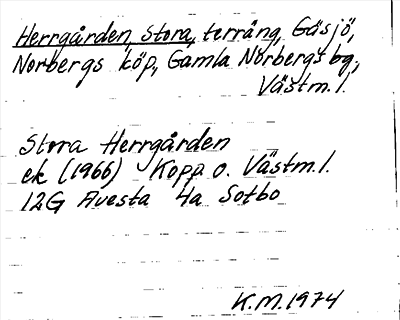 Herrgården, Stora, terräng, Gäsjö,
Norbergs köp, Gamla Norbergs bg,
Västm. l.
Stora Herrgården
ek (1966) Kopp o. Västm. l.
12G Avesta 4a Sotbo
K.M. 1974